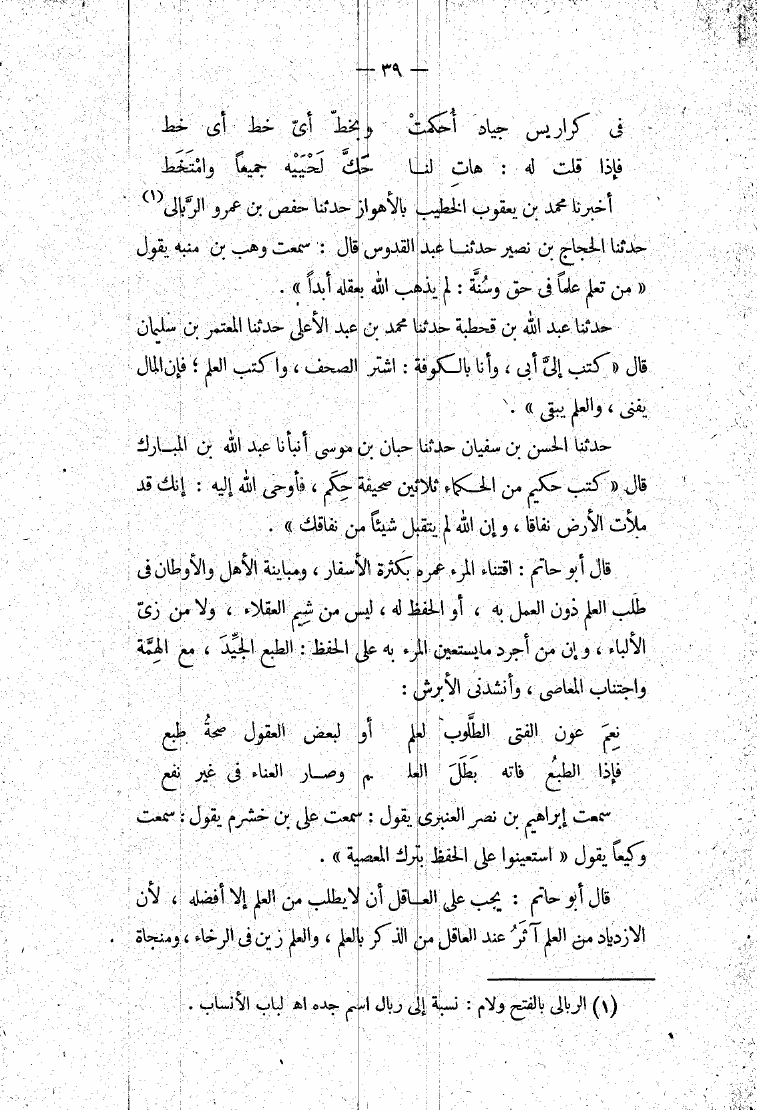 — ٣٩ —
فى كراريس جياد أُحكمتْ وبخطّ أىّ خط أى خط
فإذا قلت له : هاتِ لنــا حَكَّ لَحْيَيْه جميعاً وامْتَخَط
أخبرنا محمد بن يعقوب الخطيب بالأهواز حدثنا حفص بن عمرو الرَّبالى(١)
حدثنا الحجاج بن نصير حدثنــا عبد القدوس قال : سمعت وهب بن منبه يقول
« من تعلم علماً فى حق وسُنَّة : لم يذهب الله بعقله أبداً » .
حدثنا عبد الله بن قحطبة حدثنا محمد بن عبد الأعلى حدثنا المعتمر بن سليمان
قال « كتب إلىَّ أبى ، وأنا بالــكوفة : اشتر الصحف ، واكتب العلم ؛ فإن المال
يفنى ، والعلم يبقى » .
حدثنا الحسن بن سفيان حدثنا حبان بن موسى أنبأنا عبد الله بن المبــارك
قال « كتب حكيم من الحــكماء ثلاثين صحيفة حِكَم ، فأوحى الله إليه : إنك قد
ملأت الأرض نفاقا ، وإن الله لم يتقبل شيئاً من نفاقك » .
قال أبو حاتم : اقتناء المرء عمره بكثرة الأسفار ، ومباينة الأهل والأوطان فى
طلب العلم دون العمل به ، أو الحفظ له ، ليس من شِيَم العقلاء ، ولا من زىّ
الألباء ، وإن من أجرد مايستعين المرء به على الحفظ : الطبع الجيِّدَ ، مع الهِمَّة
واجتناب المعاصى ، وأنشدنى الأبرش :
نِعِمَ عون الفتى الطَّلُوب لعلم أو لبعض العقول صحةُ طبع
فإذا الطبعُ فاته بَطَلَ العلـ ـم وصــار العناء فى غير نفع
سمعت إبراهيم بن نصر العنبرى يقول : سمعت على بن خشرم يقول : سمعت
وكيعاً يقول « استعينوا على الحفظ بترك المعصية » .
قال أبو حاتم : يجب على العــاقل أن لا يطلب من العلم إلا أفضله ، لأن
الازدياد من العلم آثَرُ عند العاقل من الذكر بالعلم ، والعلم زين فى الرخاء ، ومنجاة
(١) الربالى بالفتح ولام : نسبة إلى ربال اسم جده اهـ لباب الأنساب .